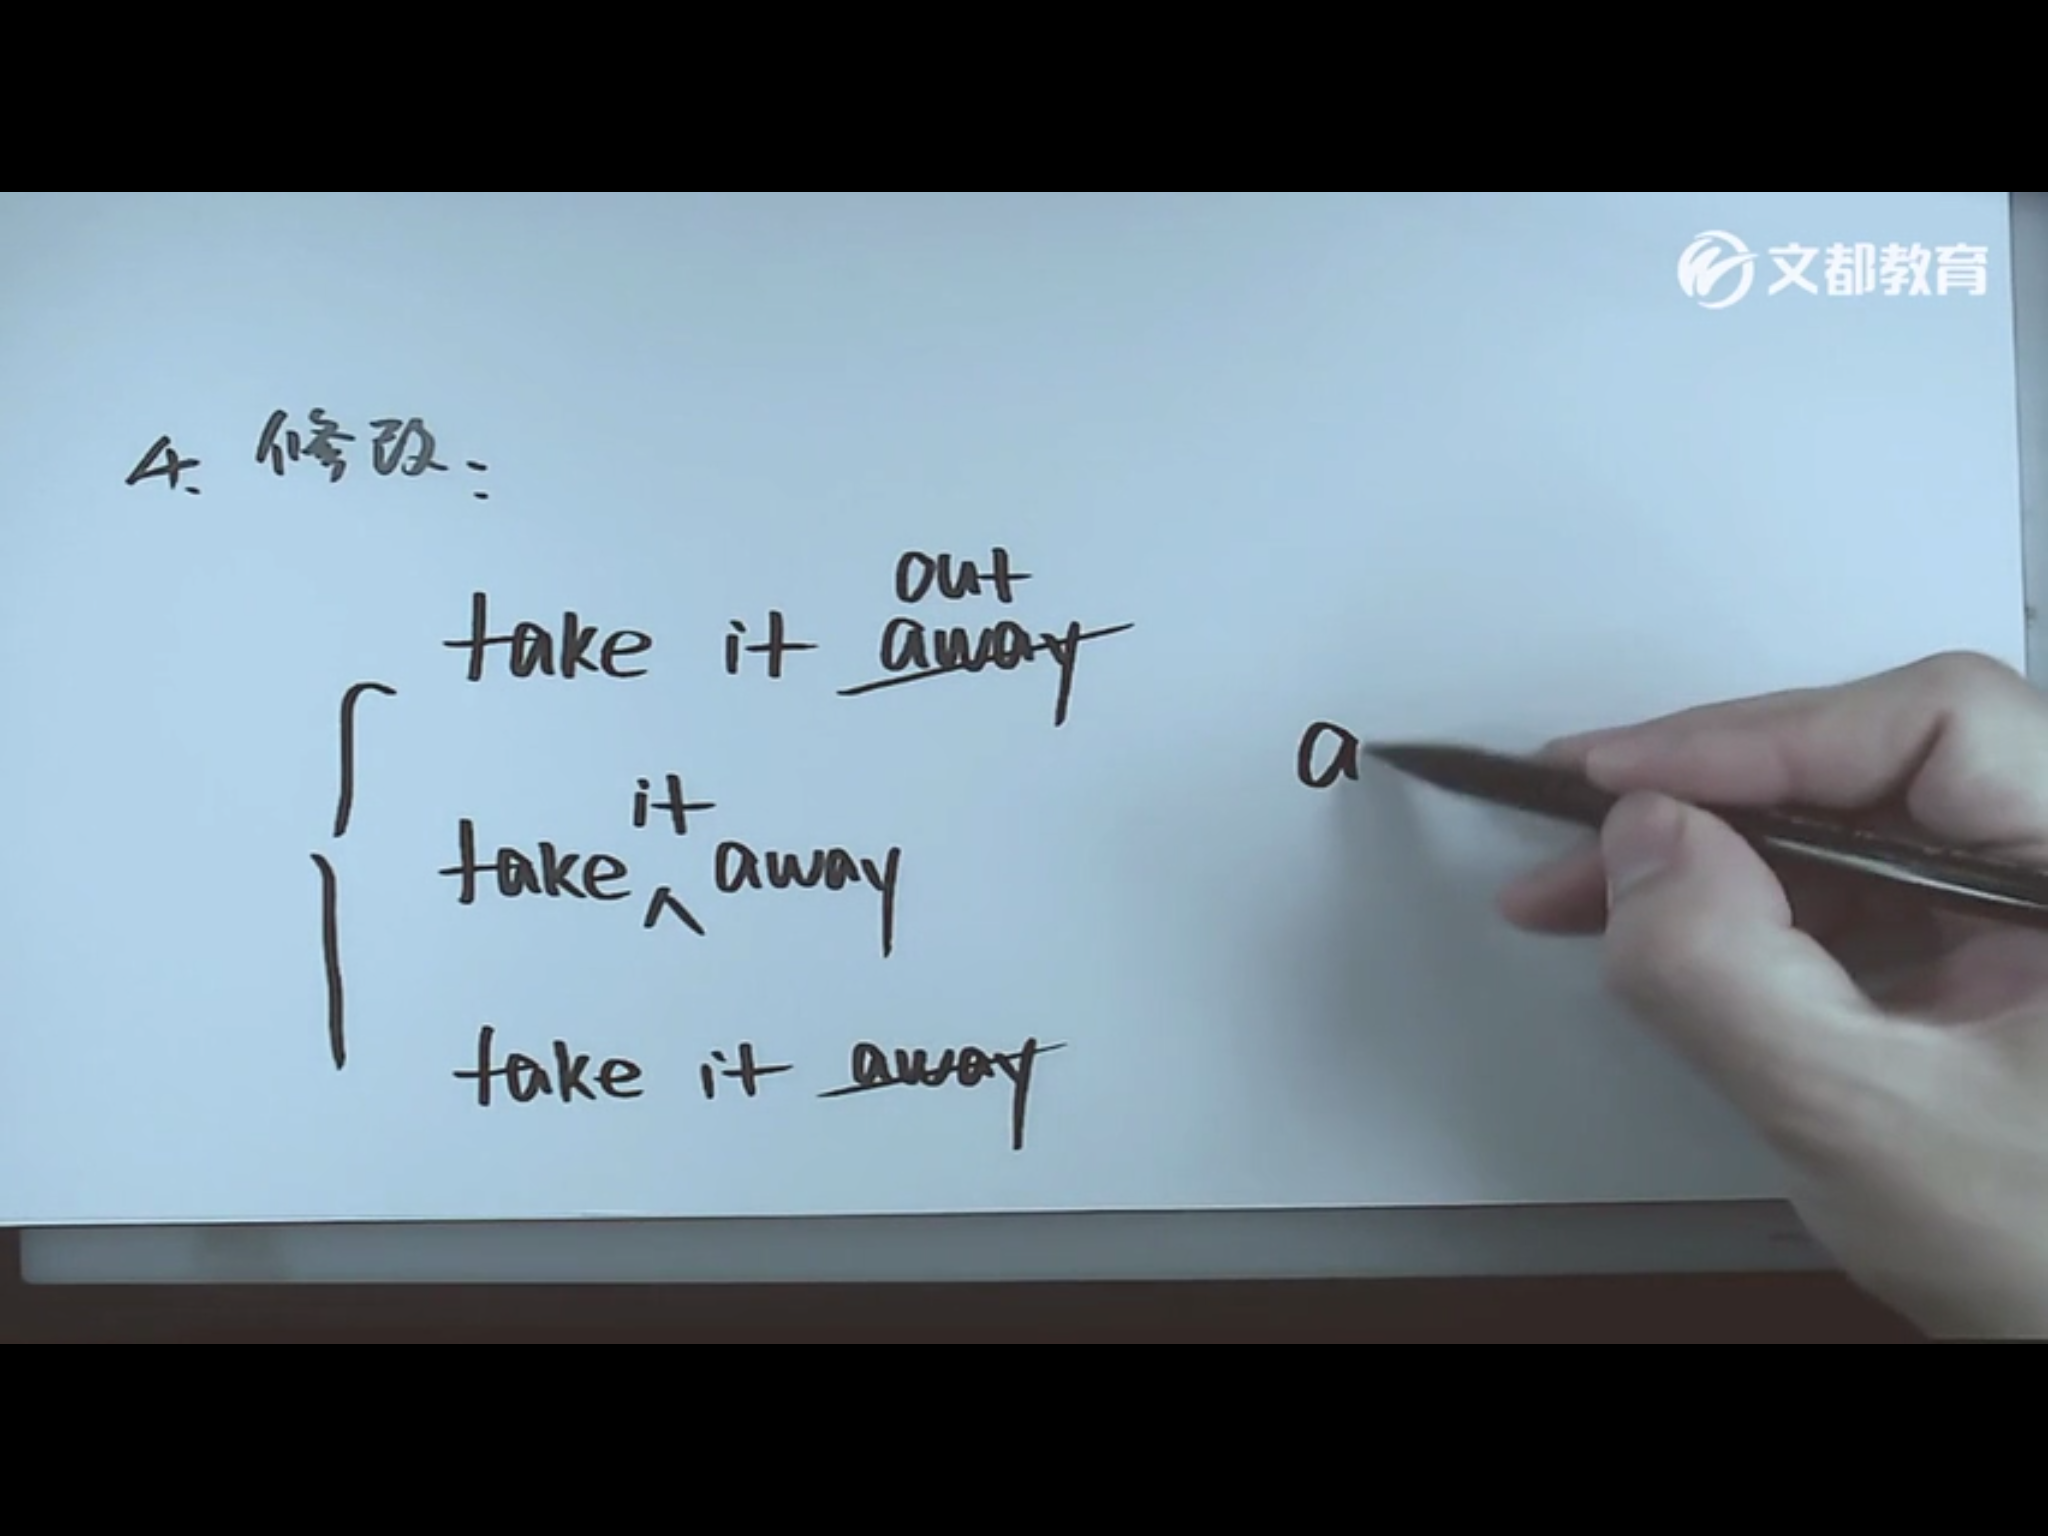 文都教育
4. 修改:
out
take it away
it
take ^ away
take it away
a